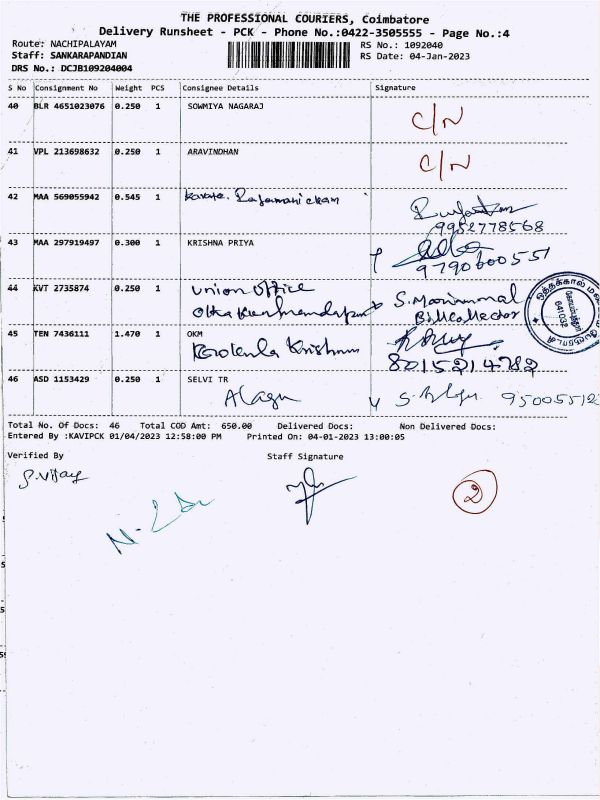 THE PROFESSIONAL COURIERS, Coimbatore
Delivery Runsheet - PCK - Phone No.:0422-3505555 - Page No.:4
Route: NACHIPALAYAM
RS No.: 1092040
Staff: SANKARAPANDIAN
RS Date: 04-Jan-2023
DRS No.: DCJB109204004
S No Consignment No Weight PCS Consignee Details Signature
40 BLR 4651023076 0.250 1 SOWMIYA NAGARAJ C/N
41 VPL 213698632 0.250 1 ARAVINDHAN C/N
42 MAA 569055942 0.545 1 Rajamanickam
9952778568
43 MAA 297919497 0.300 1 KRISHNA PRIYA
9790600551
44 KVT 2735874 0.250 1 Union Office S. Mariammal
Bill collector
45 TEN 7436111 1.470 1 OKM
Krishnan 8015214782
46 ASD 1153429 0.250 1 SELVI TR
Alagu 95005512
ஒத்தக்கால் 
கோயம்புத்தூர்
641032
Total No. Of Docs: 46 Total COD Amt: 650.00 Delivered Docs: Non Delivered Docs:
Entered By :KAVIPCK 01/04/2023 12:58:00 PM Printed On: 04-01-2023 13:00:05
Verified By Staff Signature
S. Vijay
2